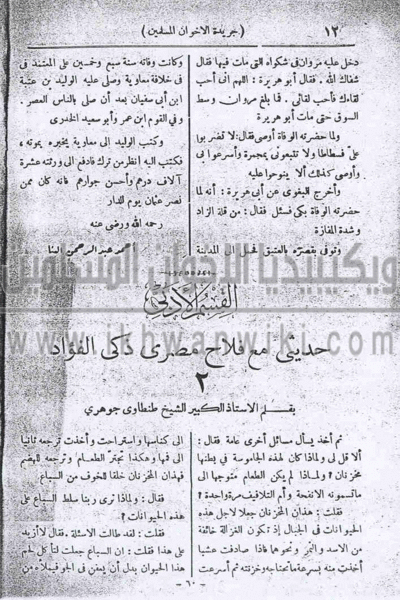 ١٢
( جريدة الاخوان المسلمين )
دخل عليه مروان فى شكواه التى مات فيها فقال
شفاك الله . فقال أبو هريرة : اللهم انى أحب
لقاءك فأحب لقائى . فما بلغ مروان وسط
السوق حتى مات أبو هريرة
ولما حضرته الوفاة أوصى فقال: لا تضربوا
على فسطاطا ولا تتبعونى بمجمرة وأسرعوا بى
وأوصى كذلك ألا ينوحوا عليه
وأخرج البغوى عن أبى هريرة : أنه لما
حضرته الوفاة بكى فسئل فقال : من قلة الزاد
وشدة المفازة
وتوفى بقصره بالعقيق فحمل الى المدينة
وكانت وفاته سنة سبع وخمسين على المعتمد فى
فى خلافة معاوية وصلى عليه الوليد بن عتبة
ابن أبى سفيان بعد أن صلى بالناس العصر .
وفى القوم ابن عمر وأبو سعيد الخدرى
وكتب الوليد الى معاوية يخبره بموته ،
فكتب اليه انظر من ترك فادفع الى ورثته عشرة
آلاف درهم وأحسن جوارهم فانه كان ممن
نصر عثمان يوم الدار
رحمه الله ورضى عنه
أحمد عبد الرحمن البنا
ويكيبيديا الإخوان المسلمين
القسم الأدبى
www.ikhwanwiki.com
حديثى مع فلاح مصرى ذكى الفؤاد
٢
بقلم الاستاذ الكبير الشيخ طنطاوى جوهرى
ثم أخذ يسأل مسائل أخرى عامة فقال :
ألا قل لى ولماذا كان لهذه الجاموسة فى بطنها
مخزنان ؟ ولماذا لم يكن الطعام متوجها الى
ما تسمونه الانفحة وأم التلافيف مرة واحدة ؟
فقلت : هذان المخزنان جعلا لاجل هذه
الحيوانات فى الجبال إذ تكون الغزالة خائفة
من الاسد والنمر ونحوهما فاذا صادفت عشبا
أخذت منه بسرعة ما تحتاجه وخزنته ثم أسرعت
الى كناسها واستراحت وأخذت ترجعه ثانيا
الى فمها وهكذا تجتر الطعام وترجعه للهضم
فهذان المخزنان خلقا للخوف من السباع
فقال : ولماذا ترى ربنا سلط السباع على
هذه الحيوانات ؟
فقلت : لقد طالت الاسئلة . فقال لا أريد
على هذا فقلت : ان السباع جعلت لتأكل لحم
هذا الحيوان بدل أن يعفن فى الجو فيملأه من
— ٦٠ —